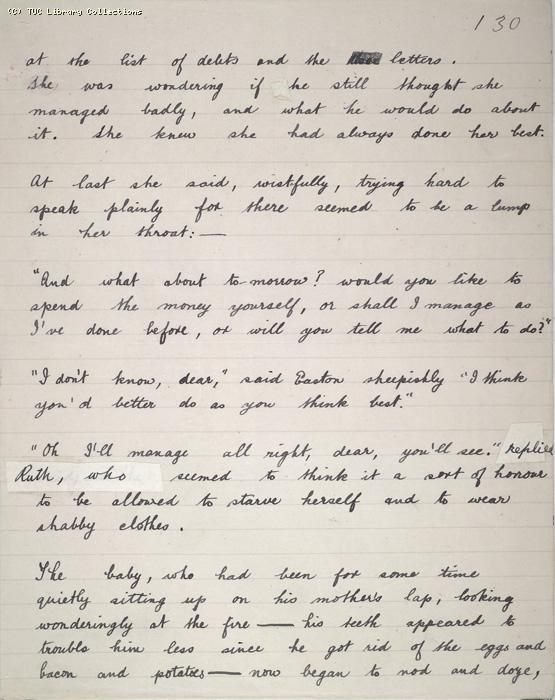 (C) TUC Library Collections
130
at the list of debts and the letters.
She was wondering if he still thought she
managed badly, and what he would do about
it. She knew she had always done her best.
At last she said, wistfully, trying hard to
speak plainly for there seemed to be a lump
in her throat:—
"And what about to-morrow? would you like to
spend the money yourself, or shall I manage as
I've done before, or will you tell me what to do?"
"I don't know, dear," said Easton sheepishly "I think
you'd better do as you think best."
"Oh I'll manage all right, dear, you'll see." replied
Ruth, who seemed to think it a sort of honour
to be allowed to starve herself and to wear
shabby clothes.
The baby, who had been for some time
quietly sitting up on his mother's lap, looking
wonderingly at the fire — his teeth appeared to
trouble him less since he got rid of the eggs and
bacon and potatoes — now began to nod and doze,